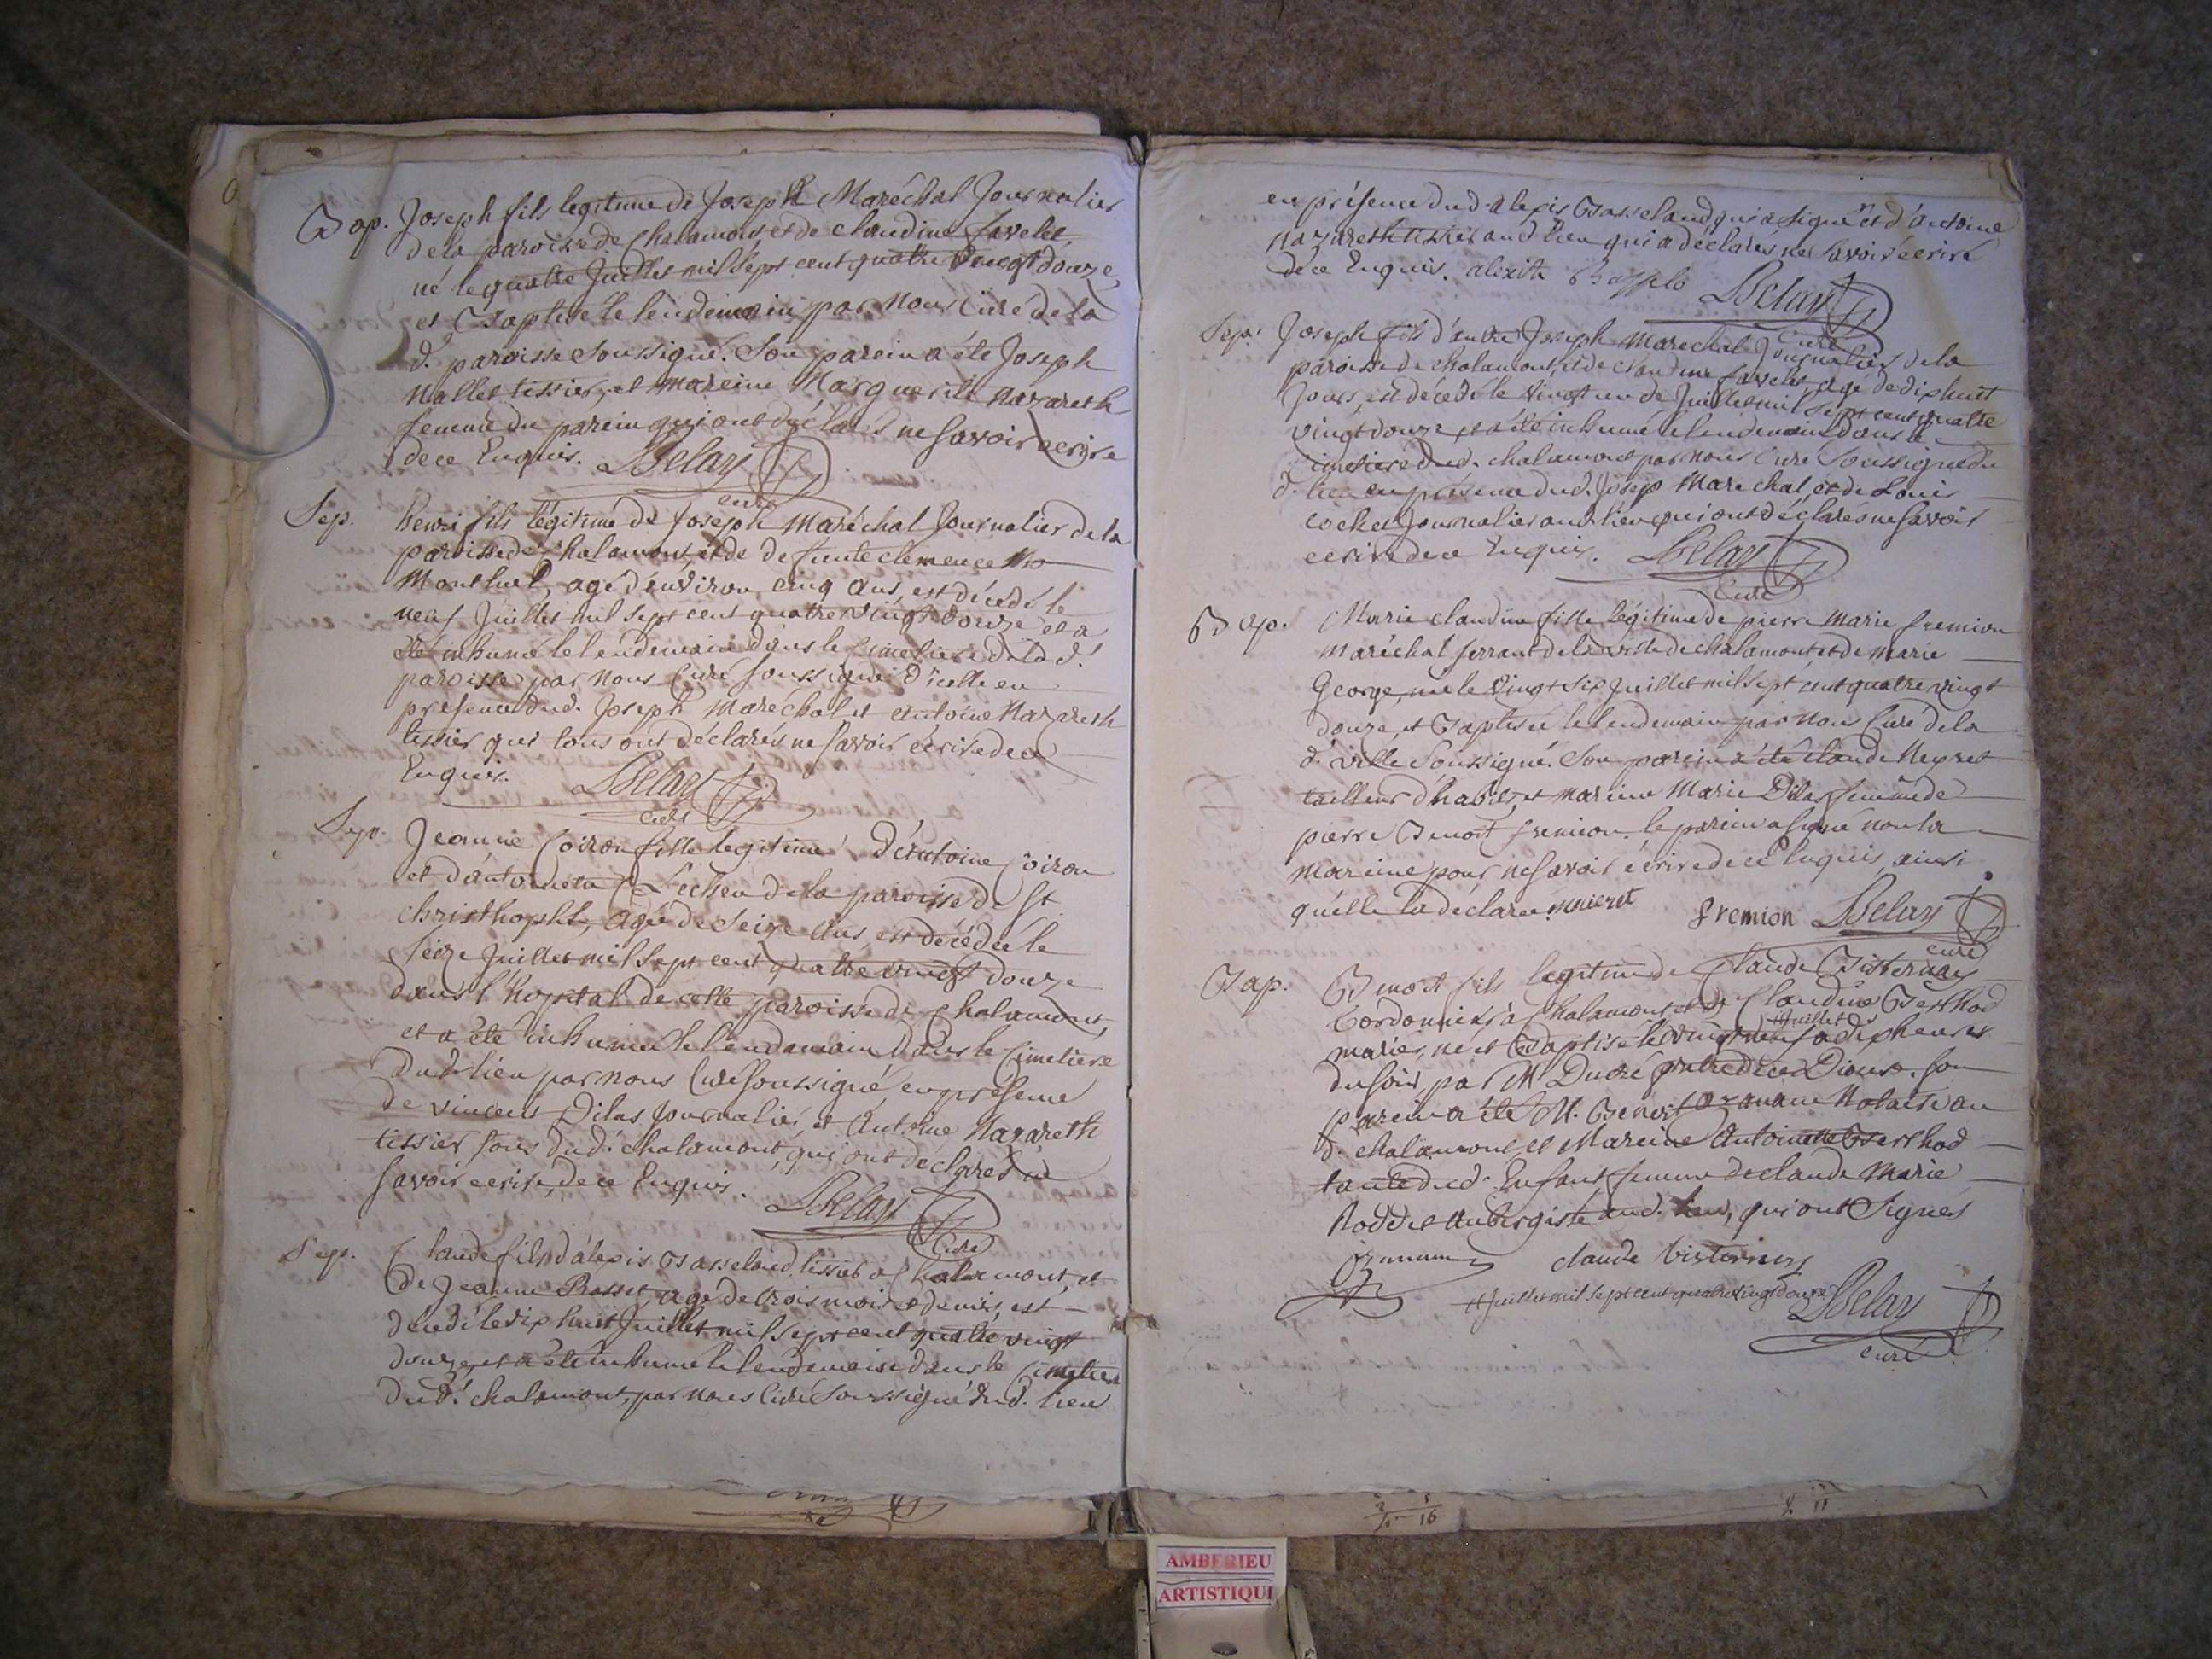 Bap. Joseph fils legitime de Joseph Maréchal Journalier
de la paroisse de Chalamont et de claudine favelet
né le quatre Juillet mil sept cent quatre vingt douze
et Baptisé le lendemain par Nous Curé de la
d. paroisse soussigné. Son parein a été Joseph
Nallet tissier, et mareine Marguerite Nazareth
femme du parein qui ont déclarés ne savoir ecrire
de ce Enquis. Belay
curé
Sep. Benoi fils légitime de Joseph Maréchal Journalier de la
paroisse de Chalamont, et de defunte clemence Mo
Montluel, agé d'environ cinq ans, est décedé le
neuf Juillet mil sept cent quatre vingt douze et a
été inhumé le lendemain dans le cimetiere de la d.
paroisse par nous Curé soussigné d'icelle en
présence dud. Joseph Maréchal et Antoine Nazareth
tissier qui tous ont déclarés ne savoir écrire de ce
Enquis. Belay
curé
Sep. Jeanne Coiron fille legitime d'Antoine Coiron
et d'antoinette de la paroisse de St
christhophe, agée de seize ans, est décédée le
seize Juillet mil sept cent quatre vingt douze
dans l'hopital de cette paroisse de Chalamont,
et a été inhumée le lendemain dans le Cimetiere
dud. lieu par nous Curé soussigné, en présence
de vincent Dilas Journalier, et Antoine Nazareth
tissier tous dud. chalamont, qui ont déclarés ne
savoir ecrire, de ce Enquis. Belay
Curé
Sep. Claude fils d'alexis Basseland tissier a Chalamont, et
de Jeanne Rosset, agé de trois mois et demis, est
décédé le dix huit Juillet mil sept cent quatre vingt
douze, et a été inhumé le lendemain dans le Cimetiere
dud. chalamont, par nous Curé soussigné dud. lieu
en présence dud. alexis Basseland qui a signé et d'antoine
Nazareth tissier aud. lieu qui a déclarés ne savoir écrire
de ce Enquis. Belay
Curé
Sep. Joseph fils d'autre Joseph Marechal Journalier de la
paroisse de chalamont, et de claudine favelet, agé de dix huit
Jours, est décedé le vingt un de Juillet mil sept cent quatre
vingt douze, et a été inhumé le lendemain dans le
Cimetiere dud. chalamont par nous Curé soussigné du
d. lieu en présence dud. Joseph Marechal, et de Louis
cochet Journalier aud. lieu qui ont déclarés ne savoir
ecrire de ce Enquis. Belay
Curé
Bap. Marie claudine fille légitime de pierre Marie fremion
Maréchal ferrant de la ville de chalamont et de Marie
George, née le vingt six Juillet mil sept cent quatre vingt
douze, et Baptisée le lendemain par nous Curé de la
d. ville soussigné. Son parein a été claude Neyret
tailleur d'habits, et mareine Marie Dilas femme de
pierre Benoit fremion. le parein a signé non la
mareine pour ne savoir écrire de ce Enquis, ainsi
qu'elle l'a déclaré. fremion Belay
curé
Bap. Benoit fils legitime de Claude Bisternay
Cordonnier à Chalamont et de Claudine Berthod
mariés, né et Baptisé le vingt neuf #Juillet à dix heures
du soir, par M. Ducré prêtre. Son
parein a été M. Benoit ozanam Notaire au
d. chalamont, et Mareine Antoinette Berthod
tante dud. Enfant femme de claude Marie
Roddet Aubergiste aud. lieu, qui ont Signés
claude bisternay
#Juillet mil sept cent quatre vingt douze Belay
curé
AMBERIEU
ARTISTIQU